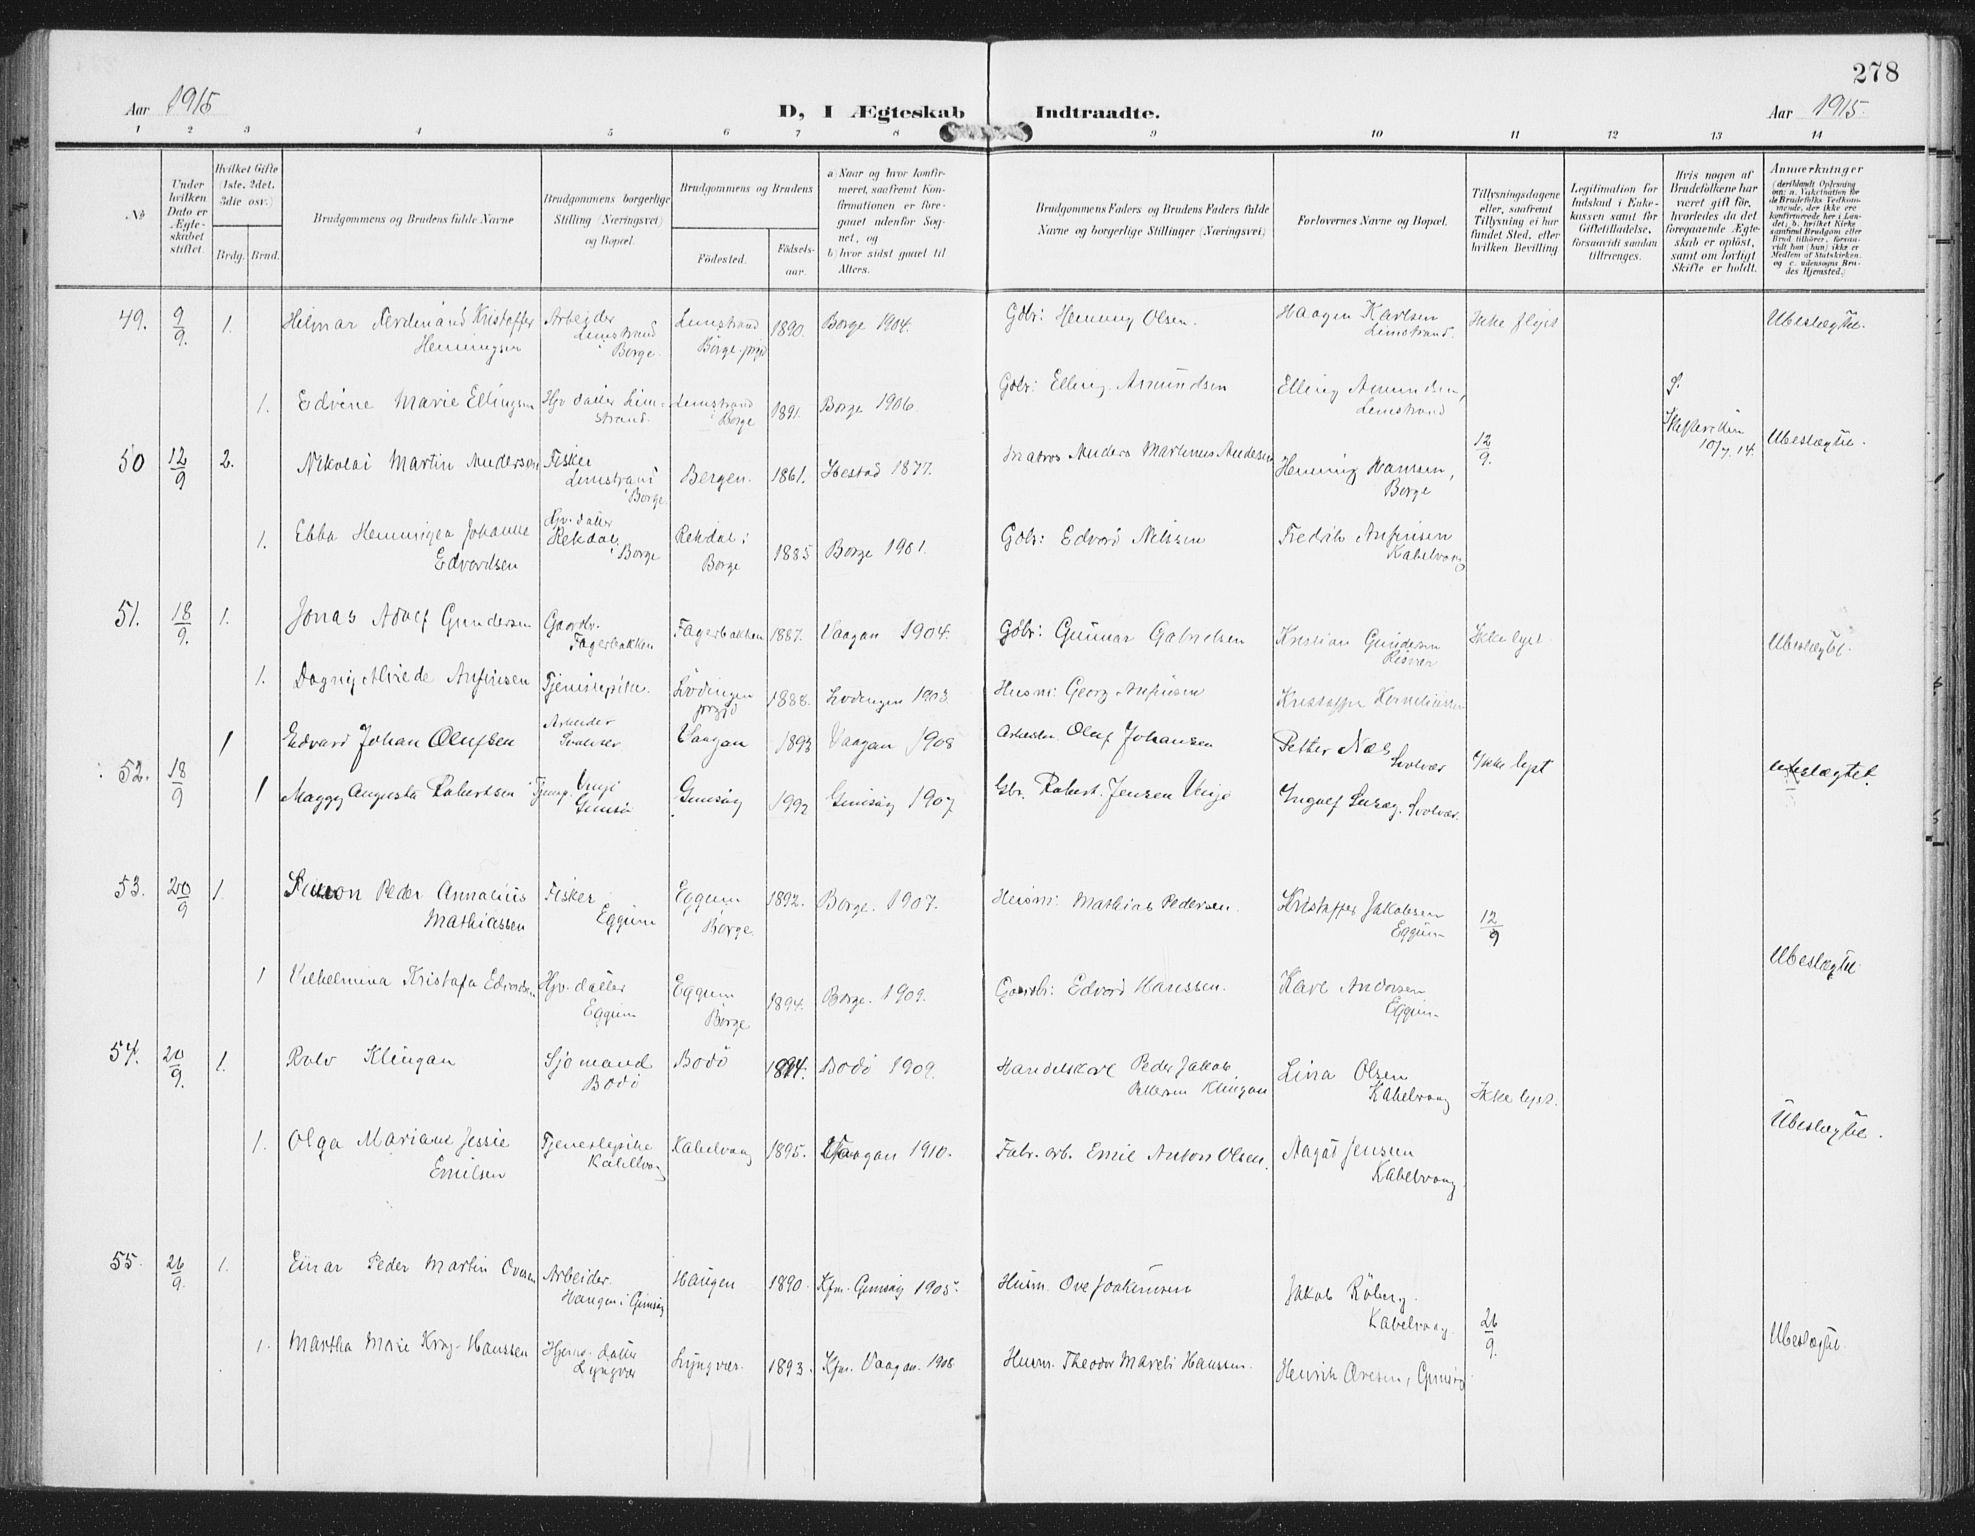 278
Aar 1915
D, I Ægteskab Indtraadte.
Aar 1915.
1 2 3 4 5 6 7 8 9 10 11 12 13 14
№
Under hvilken Dato er Ægteskabet stiftet.
Hvilket Gifte (1ste, 2det, 3die osv.)
Brdg. Brud.
Brudgommens og Brudens fulde Navne
Brudgommens borgerlige Stilling (Næringsvei) og Bopæl.
Brudgommens og Brudens
Fødested.
Fødselsaar.
a) Naar og hvor konfirmeret, saafremt Konfirmationen er foregaaet udenfor Sognet, og
b) hvor sidst gaaet til Alters.
Brudgommens Faders og Brudens Faders fulde Navne og borgerlige Stillinger (Næringsvei)
Forlovernes Navne og Bopæl.
Tillysningsdagene eller, saafremt Tillysning ei har fundet Sted, efter hvilken Bevilling
Legitimation for Indskud i Enkekassen samt for Giftetilladelse, forsaavidt saadan tiltrænges.
Hvis nogen af Brudefolkene har været gift før, hvorledes da det foregaaende Ægteskab er opløst, samt om lovligt Skifte er holdt.
Anmærkninger
(deriblandt Oplysning om: a. Vakcination for de Brudefolks Vedkommende, der ikke ere konfirmerede her i Landet; b. hvilket Kirkesamfund Brudgom eller Brud tilhører, forsaavidt han (hun) ikke er Medlem af Statskirken. og c. udensogns Brudes Hjemsted.)
49. 9/9. 1. Hilmar Ferdinand Kristoffer Henningsen Arbeider Limstrand i Borge. Limstrand Borge prgjd 1890. Borge 1904. Gdbr: Henning Olsen. Haagen Karlsen Limstrand. Ikke flyst Ubeslægtet.
1. Edvine Marie Ellingsen Hjv. datter Limstrand. Limstrand i Borge 1891. Borge 1906. Gdbr: Elling Amundsen Elling Amundsen, Limstrand S.
50 12/9 2. Nikolai Martin Andersen Fisker Limstrand i Borge Bergen. 1861. Ibestad 1877. Matros Anders Martinus Andersen Henning Hansen, Borge 12/9. Skifteretten 10/7. 14. Ubeslægtet.
1. Ebba Henningea Johanne Edvardsen Hjv. datter Rekdal i Borge Rekdal i Borge 1885 Borge 1901. Gdbr: Edvard Nilssen Fredrik Anfinsen Kabelvaag
51. 18/9. 1. Jonas Adolf Gundersen Gaardbr. Fagerbakken Fagerbakken 1887. Vaagan 1904. Gdbr: Gunnar Gabrielsen Kristian Gundersen Risvær Ikke lyst. Ubeslægtet.
1. Dagny Alvilde Anfinsen Tjenestepike. Lødingen prgjd 1888. Lødingen 1903. Husm: Georg Anfinsen Kristoffer Korneliussen
52. 18/9 1 Edvard Johan Olufsen Arbeider Svolvær Vaagan 1893 Vaagan 1908 Arbeider Oluf Johansen Petter Næs Svolvær Ikke lyst ubeslægtet.
1 Maggy Augusta Robertsen Tjenp. Vinje Gimsø Gimsøy 1992 Gimsøy 1907 Gbr. Robert Jensen Vinje Ingvalf Svolvær.
53. 20/9 1. Simon Peder Annanius Mathiassen Fisker Eggum Eggum i Borge. 1892. Borge. 1907. Husm: Mathias Pedersen. Kristoffer Jakobsen Eggum 12/9
1 Vilhelmina Kristofa Edvardsen Hjv. datter Eggum Eggum Borge 1894. Borge. 1909. Gaardbr: Edvard Hanssen. Karl Andersen Eggum Ubeslægtet.
54. 20/9. 1. Rolv Klingan Sjømand Bodø Bodø 1894. Bodø 1909. Handelskarl Peder Jakob Pettersen Klingan Lina Olsen Kabelvaag Ikke lyst. Ubeslægtet.
1. Olga Mariane Jessie Emilsen Tjenestepike Kabelvaag Kabelvaag 1895. Vaagan 1910. Fabr. arb. Emil Anton Olsen. Aagot Jensen Kabelvaag.
55. 26/9. 1. Einar Peder Martin Ovesen Arbeider Haugen i Gimsøy Haugen 1890. Kfm. Gimsøy 1905. Husm. Ove Joakimsen Jakob Røberg. Kabelvaag. 26/9.
1. Martha Marie Krog-Hanssen Hjems. datter Lyngvær Lyngvær. 1893. Kfm. Vaagan. 1908 Husm. Theodor Mareli Hanssen. Henrik Ovesen, Gimsøy Ubeslægtet.